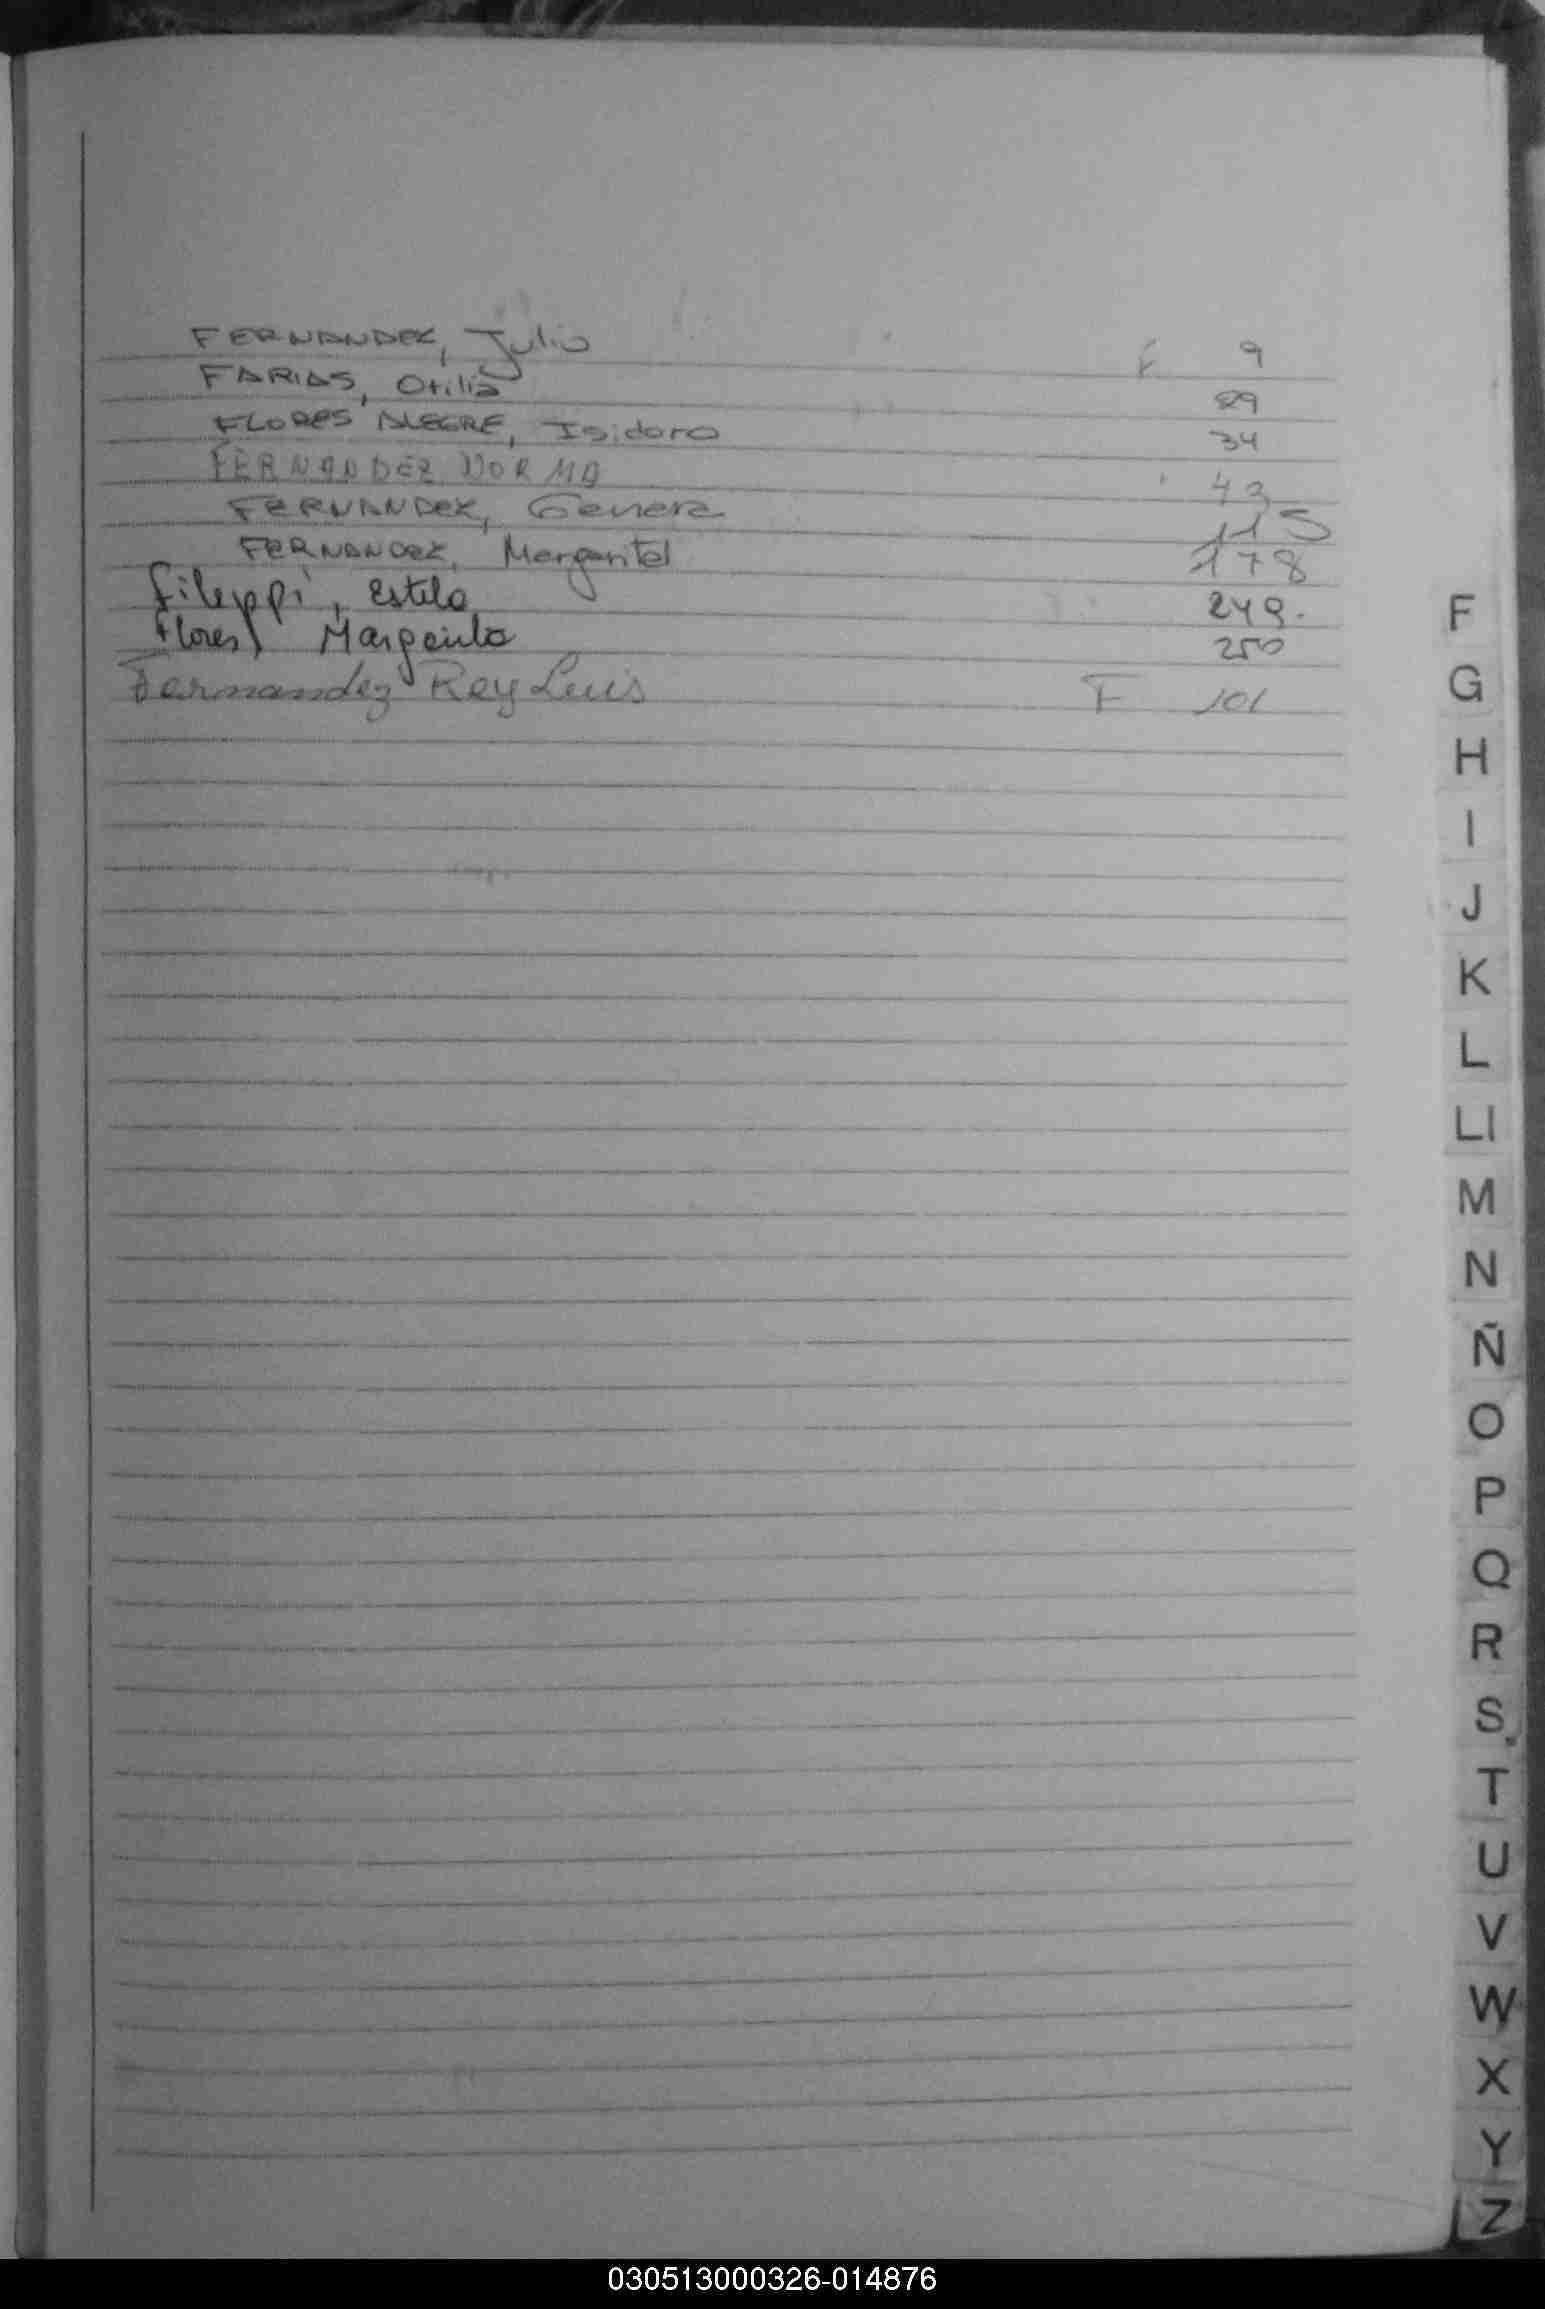 FERNANDEZ, Julio F 9
FARIAS, Otilia 29
FLORES ALEGRE, Isidoro 34
FERNANDEZ NORMA 43
FERNANDEZ, Genera 115
FERNANDEZ, Margarita 178
Fileppi, Estela 249.
Flores, Margarita 250
Fernandez Rey Luis F 101
F
G
H
I
J
K
L
Ll
M
N
Ñ
O
P
Q
R
S
T
U
V
W
X
Y
Z
030513000326-014876